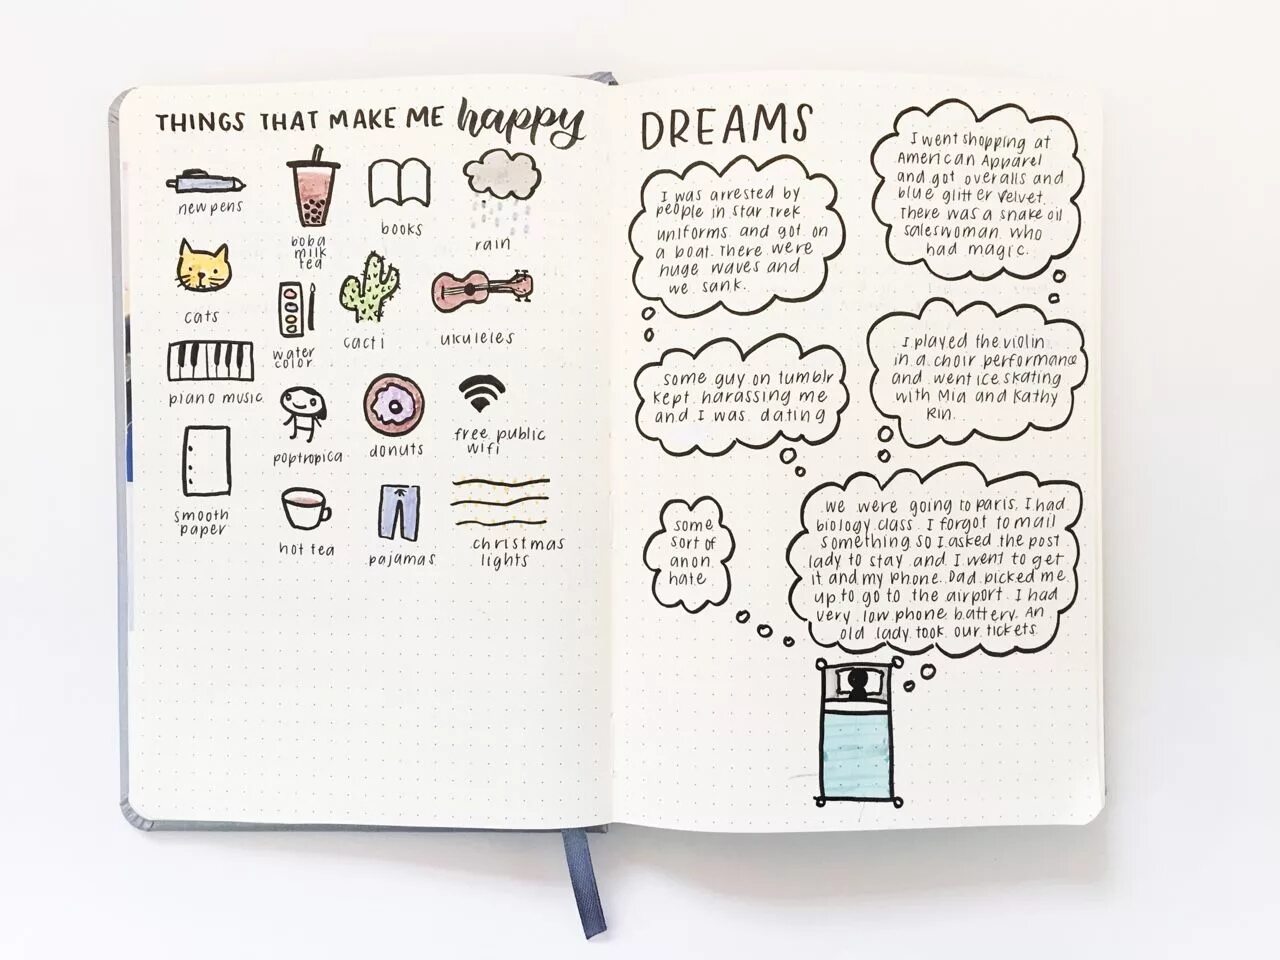 THINGS THAT MAKE ME happy
new pens
boba
milk
tea
books
rain
cats
water
color
cacti
ukuleles
piano music
poptropica
donuts
free public
wifi
smooth
paper
hot tea
pajamas
christmas
lights
DREAMS
I was arrested by
people in Star Trek
uniforms and got on
a boat. There were
huge waves and
we sank.
I went shopping at
American Apparel
and got overalls and
blue glitter velvet.
There was a snake oil
saleswoman who
had magic.
some guy on tumblr
kept harassing me
and I was dating
I played the violin
in a choir performance
and went ice skating
with Mia and Kathy
Rin.
some
sort of
anon
hate
We were going to paris. I had
biology class. I forgot to mail
something so I asked the post
lady to stay and I went to get
it and my phone. Dad picked me
up to go to the airport. I had
very low phone battery. An
old lady took our tickets